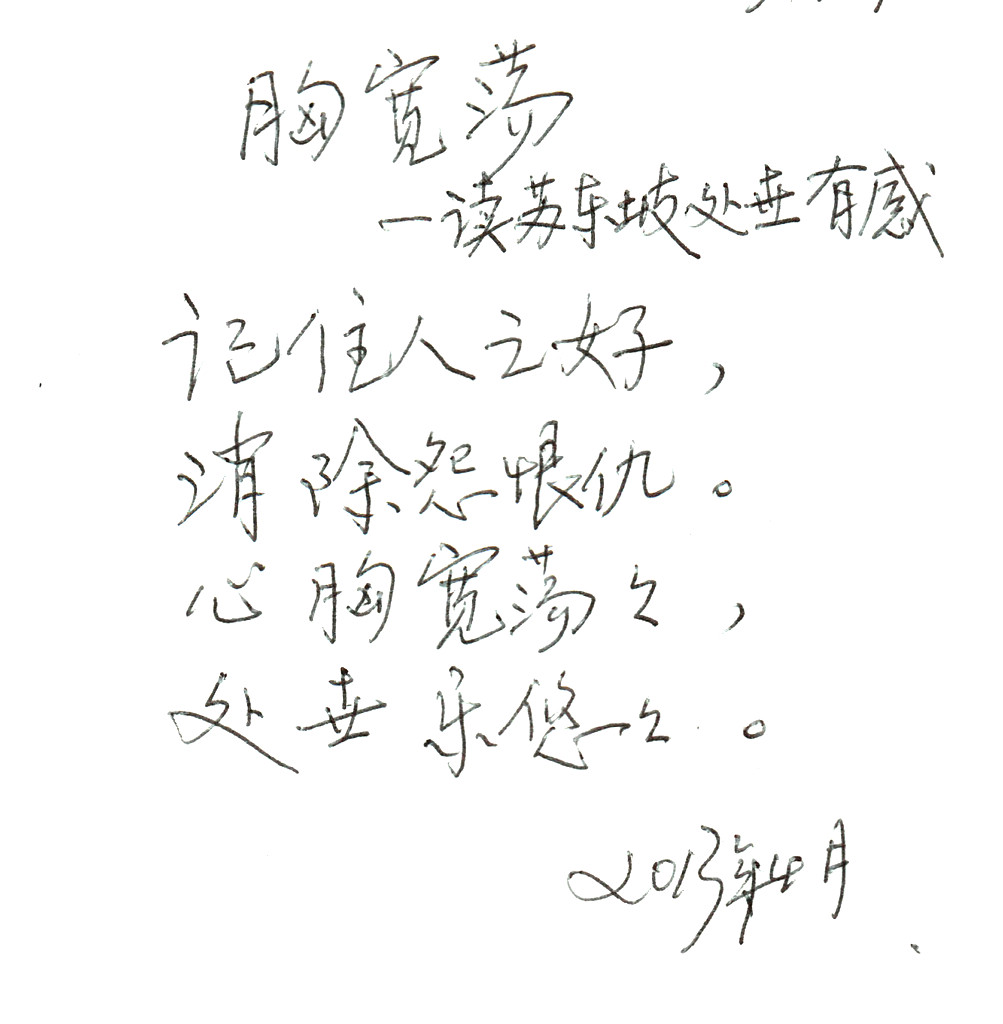 胸宽荡
一读苏东坡处世有感
记住人之好，
消除怨恨仇。
心胸宽荡々，
处世乐悠々。
2013年4月